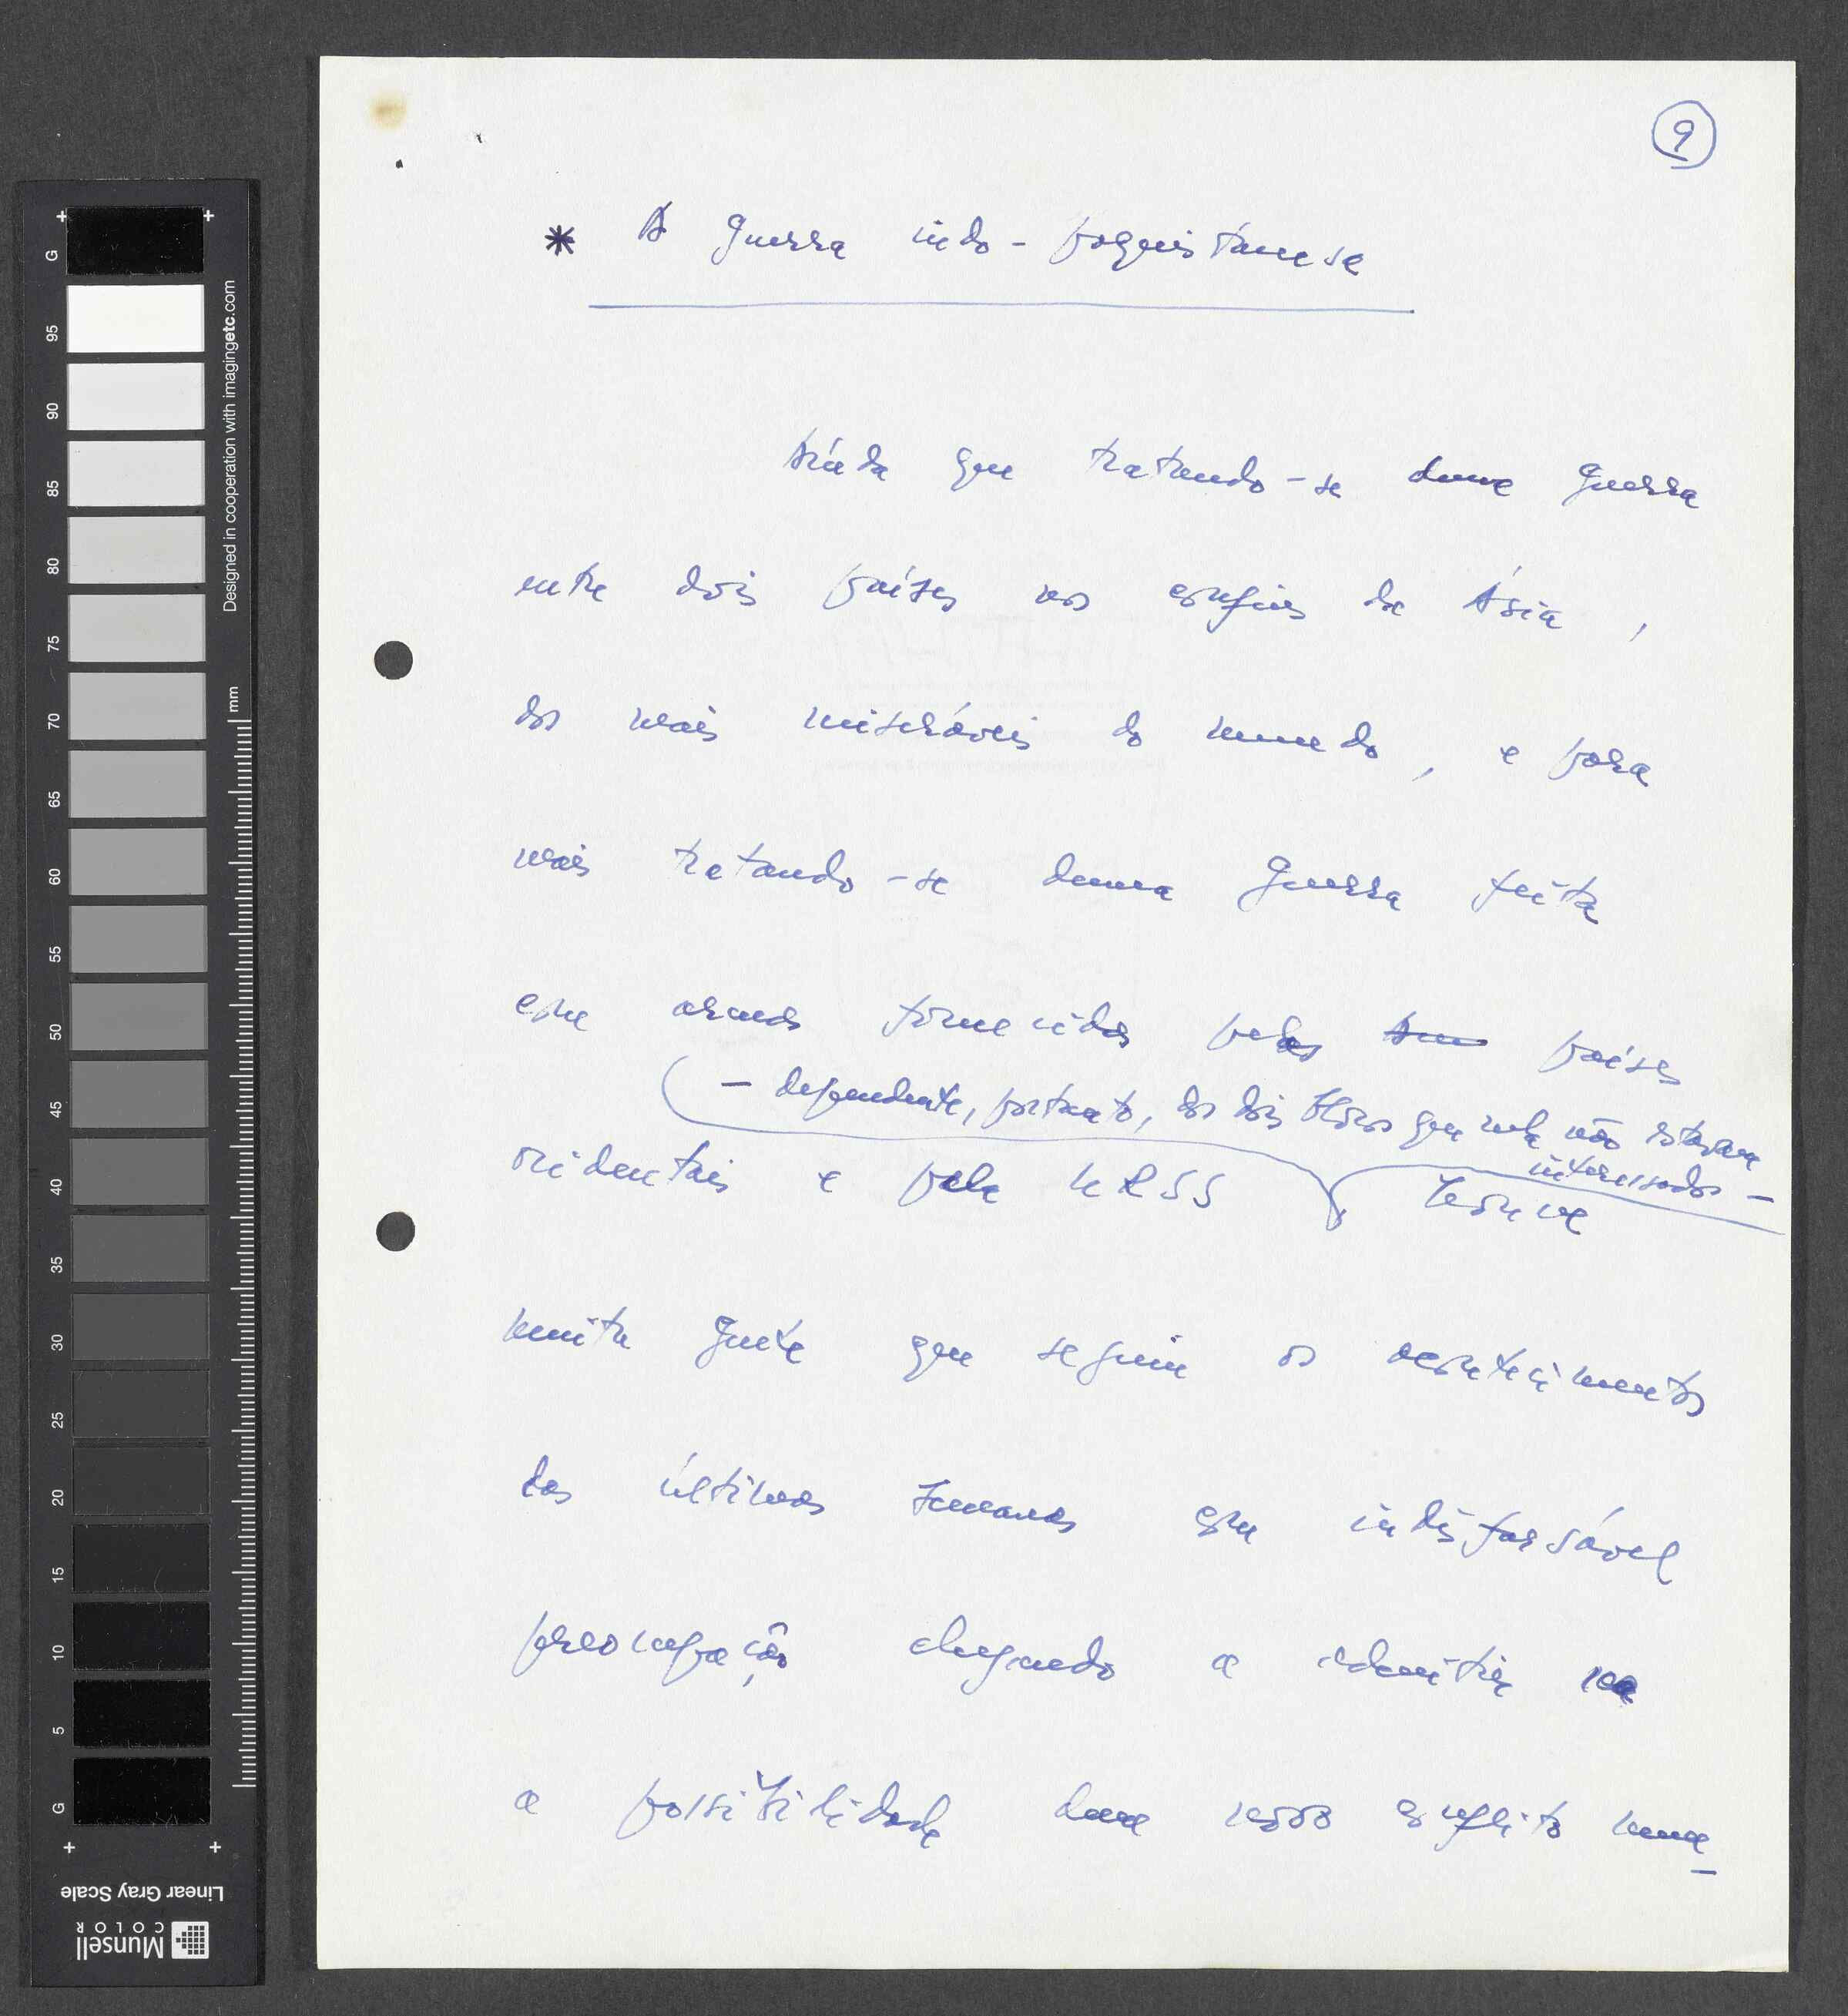 9
* A guerra indo-paquistanesa
Ainda que tratando-se duma guerra
entre dois países nos confins da Ásia,
dos mais miseráveis do mundo, e para
mais tratando-se duma guerra feita
com armas fornecidas pelos países
— dependente, portanto, dos dois blocos que nela não estavam
interessados —
ocidentais e pela URSS houve
muita gente que seguiu os acontecimentos
das últimas semanas com indisfarsável
preocupação chegando a admitir
a possibilidade dum novo conflito
G 95 90 85 80 75 70 65 60 55 50 45 40 35 30 25 20 15 10 5 G
Designed in cooperation with imagingetc.com
mm
Linear Gray Scale
Munsell
COLOR